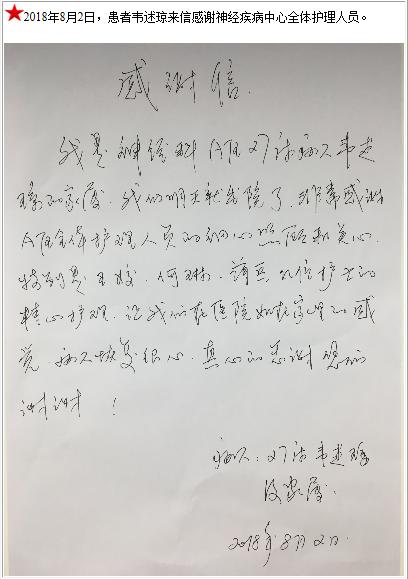 ★2018年8月2日，患者韦述琼来信感谢神经疾病中心全体护理人员。
感谢信
我是神经科A区27床病人韦述
琼的家属。我们明天就出院了，非常感谢
A区全体护理人员的细心照顾和关心，
特别是王姣、何琳、蒲燕几位护士的
精心护理，让我们在医院如在家里的感
觉，病人恢复很心，真心的感谢您们
谢谢！
病人：27床韦述琼
及家属
2018年8月2日